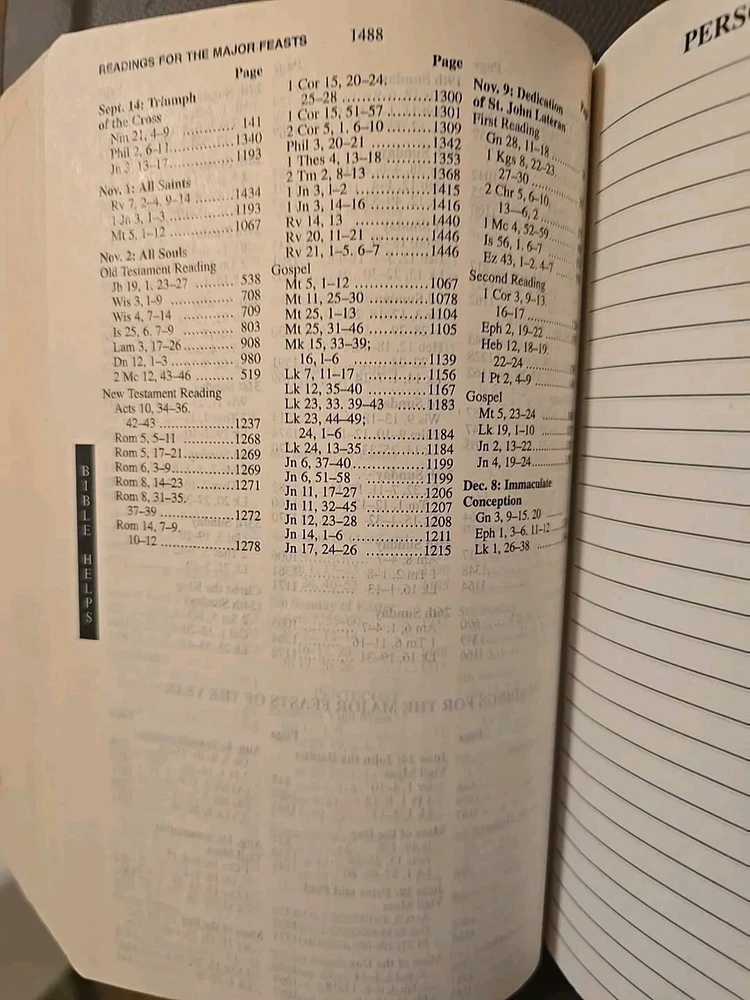 READINGS FOR THE MAJOR FEASTS
1488
Page
Sept. 14: Triumph
of the Cross
Nm 21, 4–9 ............ 141
Phil 2, 6–11 ............ 1340
Jn 3, 13–17 ............ 1193
Nov. 1: All Saints
Rv 7, 2–4. 9–14 ........ 1434
1 Jn 3, 1–3 ............ 1193
Mt 5, 1–12 ............ 1067
Nov. 2: All Souls
Old Testament Reading
Jb 19, 1. 23–27 ......... 538
Wis 3, 1–9 ............ 708
Wis 4, 7–14 ............ 709
Is 25, 6. 7–9 ............ 803
Lam 3, 17–26 ........... 908
Dn 12, 1–3 ............ 980
2 Mc 12, 43–46 .......... 519
New Testament Reading
Acts 10, 34–36.
42–43 ............ 1237
Rom 5, 5–11 ............ 1268
Rom 5, 17–21 ............ 1269
Rom 6, 3–9 ............ 1269
Rom 8, 14–23 ............ 1271
Rom 8, 31–35.
37–39 ............ 1272
Rom 14, 7–9.
10–12 ............ 1278
Page
1 Cor 15, 20–24.
25–28 ............ 1300
1 Cor 15, 51–57 ............ 1301
2 Cor 5, 1. 6–10 ............ 1309
Phil 3, 20–21 ............ 1342
1 Thes 4, 13–18 ............ 1353
2 Tm 2, 8–13 ............ 1368
1 Jn 3, 1–2 ............ 1415
1 Jn 3, 14–16 ............ 1416
Rv 14, 13 ............ 1440
Rv 20, 11–21 ............ 1446
Rv 21, 1–5. 6–7 ............ 1446
Gospel
Mt 5, 1–12 ............ 1067
Mt 11, 25–30 ............ 1078
Mt 25, 1–13 ............ 1104
Mt 25, 31–46 ............ 1105
Mk 15, 33–39;
16, 1–6 ............ 1139
Lk 7, 11–17 ............ 1156
Lk 12, 35–40 ............ 1167
Lk 23, 33. 39–43 ............ 1183
Lk 23, 44–49;
24, 1–6 ............ 1184
Lk 24, 13–35 ............ 1184
Jn 6, 37–40 ............ 1199
Jn 6, 51–58 ............ 1199
Jn 11, 17–27 ............ 1206
Jn 11, 32–45 ............ 1207
Jn 12, 23–28 ............ 1208
Jn 14, 1–6 ............ 1211
Jn 17, 24–26 ............ 1215
Nov. 9: Dedication
of St. John Lateran
First Reading
Gn 28, 11–18
1 Kgs 8, 22–23.
27–30
2 Chr 5, 6–10.
13–6, 2
1 Mc 4, 52–59
Is 56, 1. 6–7
Ez 43, 1–2. 4–7
Second Reading
1 Cor 3, 9–13.
16–17
Eph 2, 19–22
Heb 12, 18–19.
22–24
1 Pt 2, 4–9
Gospel
Mt 5, 23–24
Lk 19, 1–10
Jn 2, 13–22
Jn 4, 19–24
Dec. 8: Immaculate
Conception
Gn 3, 9–15. 20
Eph 1, 3–6. 11–12
Lk 1, 26–38
BIBLE HELPS
PERSO